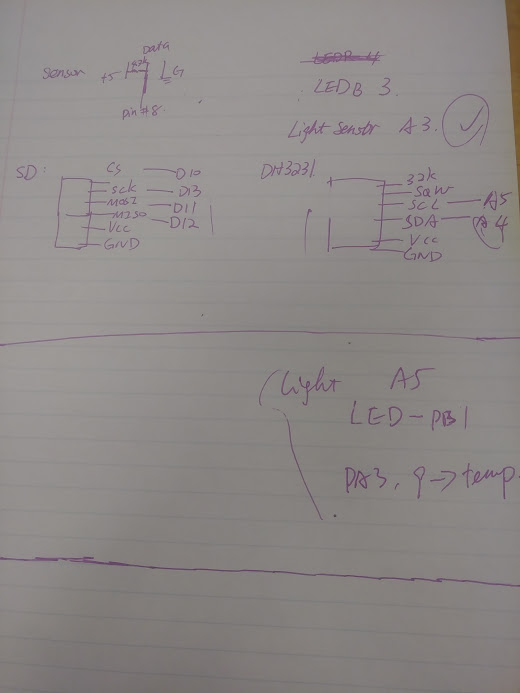 Data
Sensor +5 G
pin #8.
LEDB 3.
Light Sensor A3.
SD:
CS D10
SCK D13
MOSI D11
MISO D12
VCC
GND
DH3231
32K
SQW
SCL A5
SDA A4
VCC
GND
Light A5
LED-PB1
PA3, 9 -> temp.